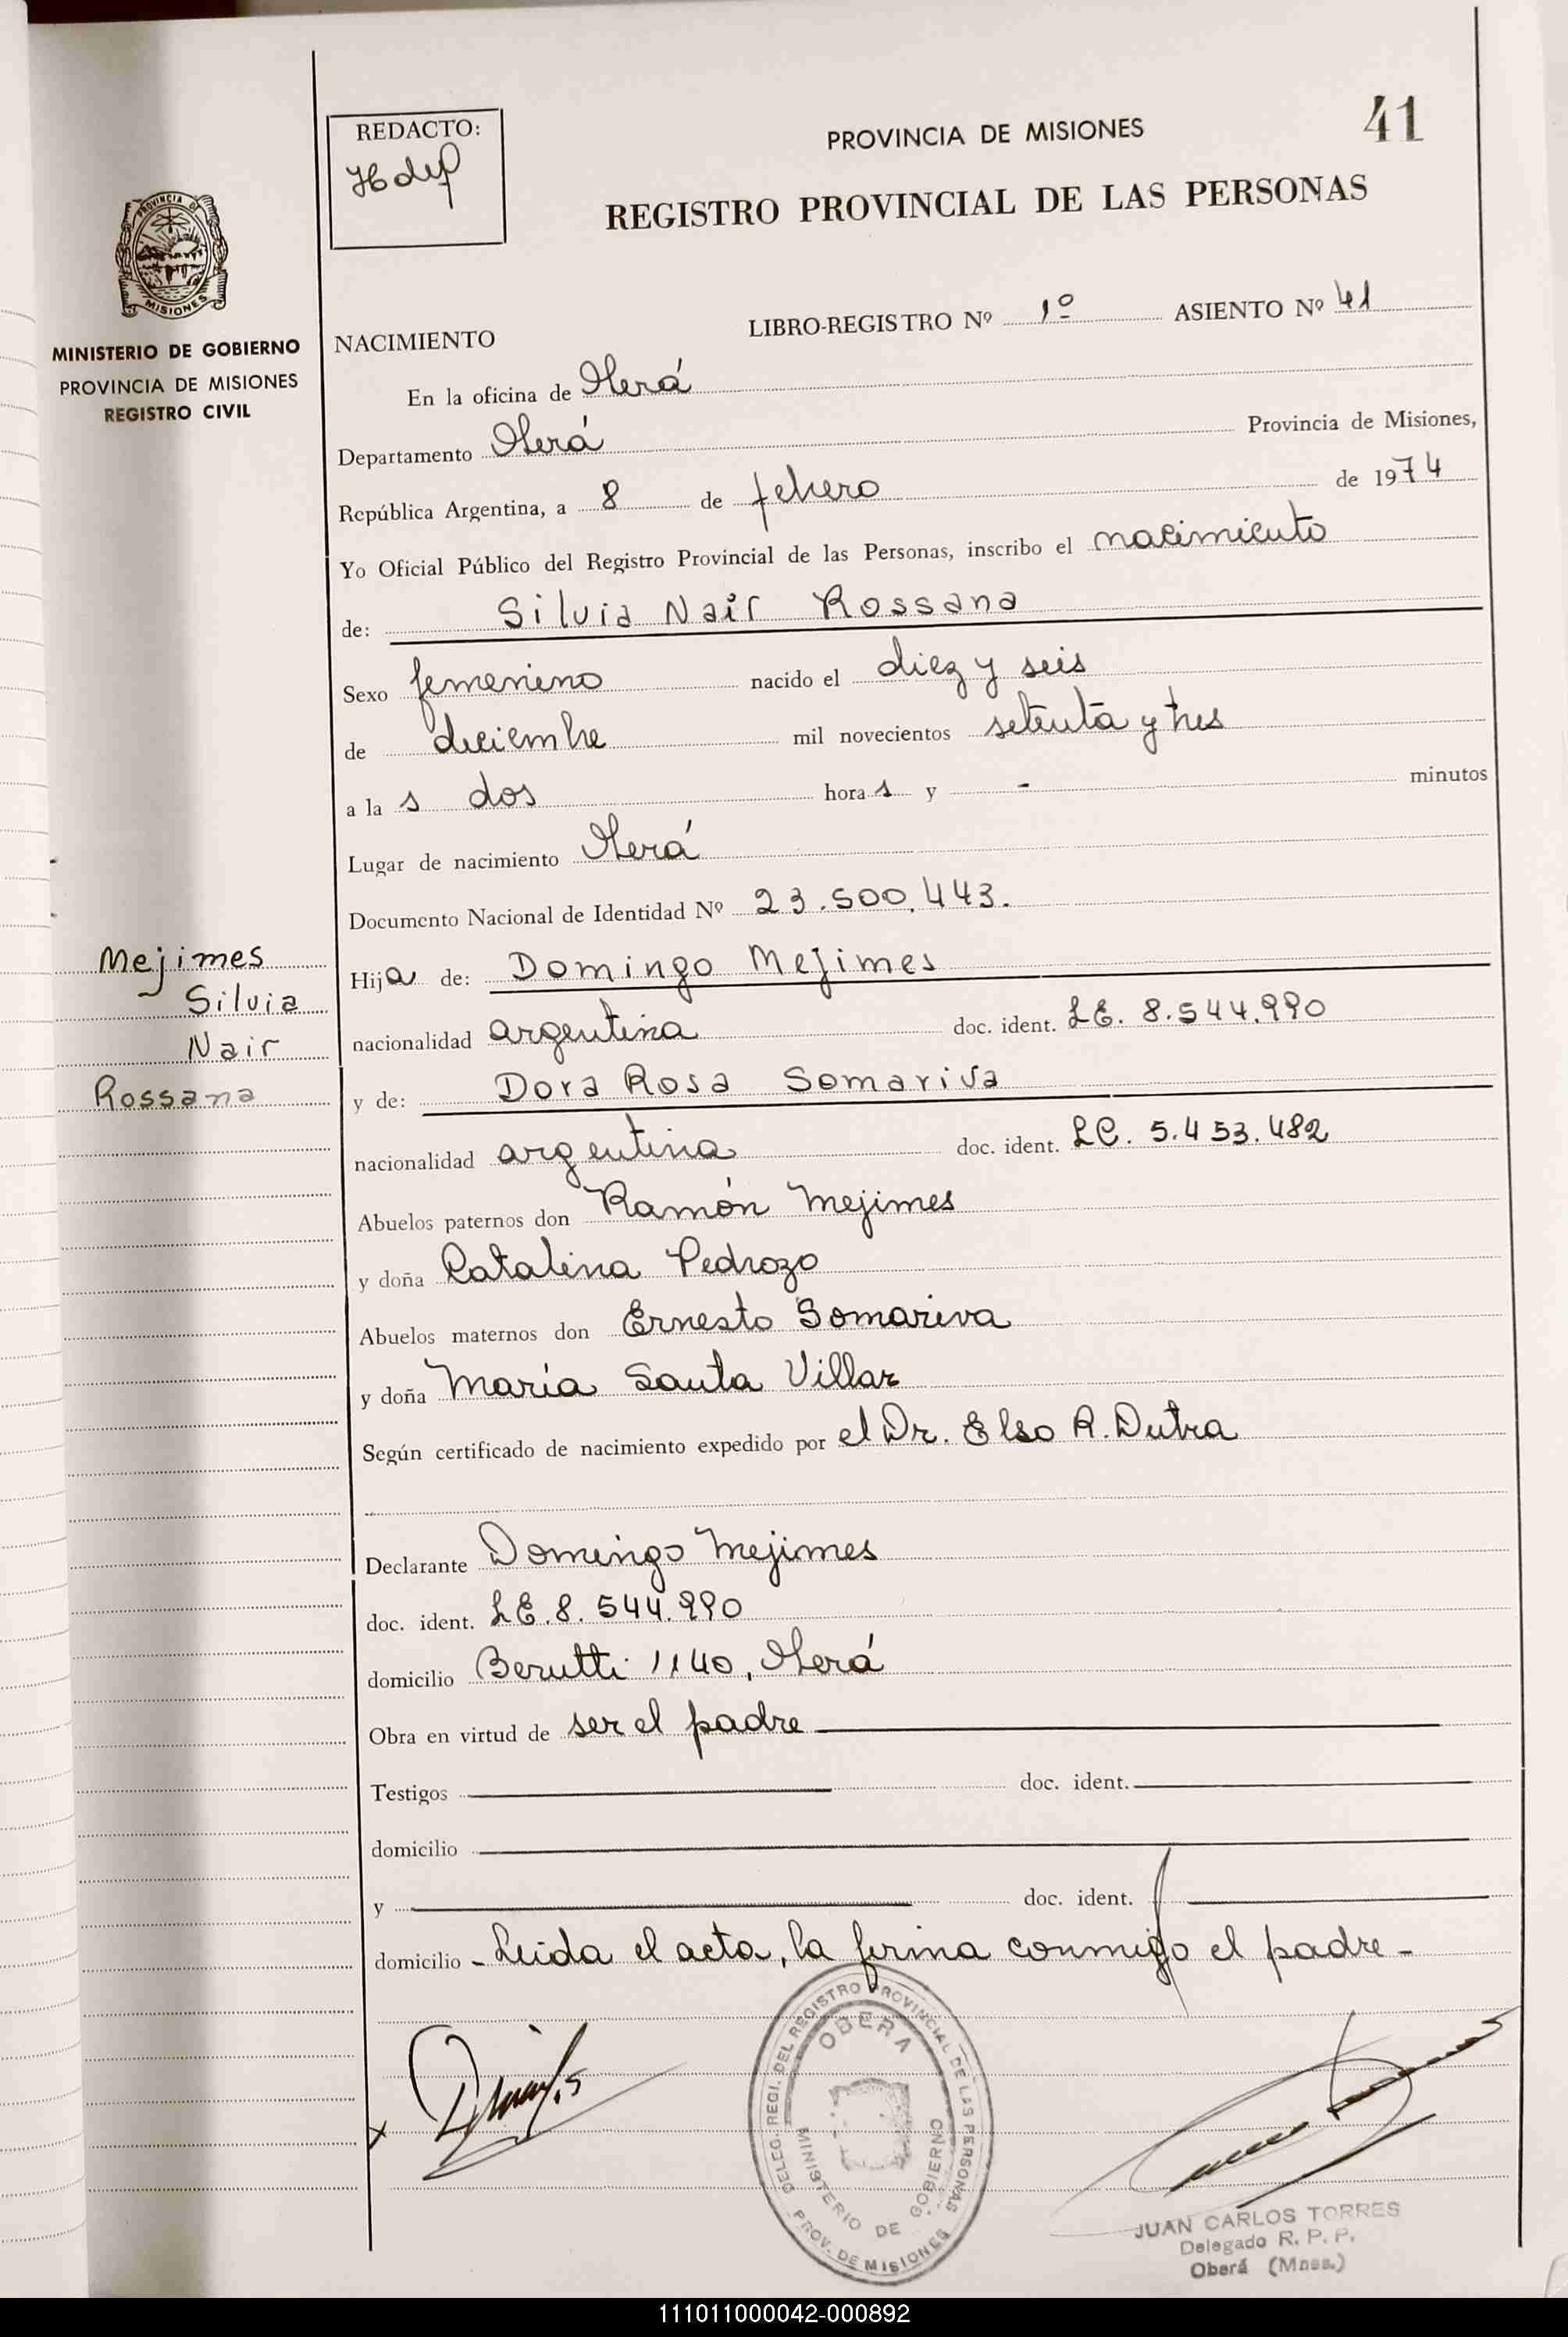 41
REDACTO:
PROVINCIA DE MISIONES
REGISTRO PROVINCIAL DE LAS PERSONAS
PROVINCIA DE
MISIONES
MINISTERIO DE GOBIERNO
PROVINCIA DE MISIONES
REGISTRO CIVIL
NACIMIENTO LIBRO-REGISTRO Nº 1º ASIENTO Nº 41
En la oficina de Oberá
Departamento Oberá Provincia de Misiones,
República Argentina, a 8 de febrero de 1974
Yo Oficial Público del Registro Provincial de las Personas, inscribo el nacimiento
de: Silvia Nair Rossana
Sexo femenino nacido el diez y seis
de diciembre mil novecientos setenta y tres
a la s dos hora s y - minutos
Lugar de nacimiento Oberá
Documento Nacional de Identidad Nº 23.500.443.
Hija de: Domingo Mejimes
nacionalidad argentina doc. ident. LE. 8.544.990
y de: Dora Rosa Somariva
nacionalidad argentina doc. ident. LC. 5.453.482
Abuelos paternos don Ramón Mejimes
y doña Catalina Pedrozo
Abuelos maternos don Ernesto Somariva
y doña María Santa Villar
Según certificado de nacimiento expedido por el Dr. Elso R. Dutra
Declarante Domingo Mejimes
doc. ident. LE. 8.544.990
domicilio Berutti 1140, Oberá
Obra en virtud de ser el padre
Testigos doc. ident.
domicilio
y doc. ident.
domicilio - Leida el acta, la firma conmigo el padre -
Mejimes
Silvia
Nair
Rossana
DELEG. REGI. DEL REGISTRO PROVINCIAL DE LAS PERSONAS
OBERA
MINISTERIO DE GOBIERNO
PROV. DE MISIONES
JUAN CARLOS TORRES
Delegado R. P. P.
Oberá (Mnes.)
111011000042-000892